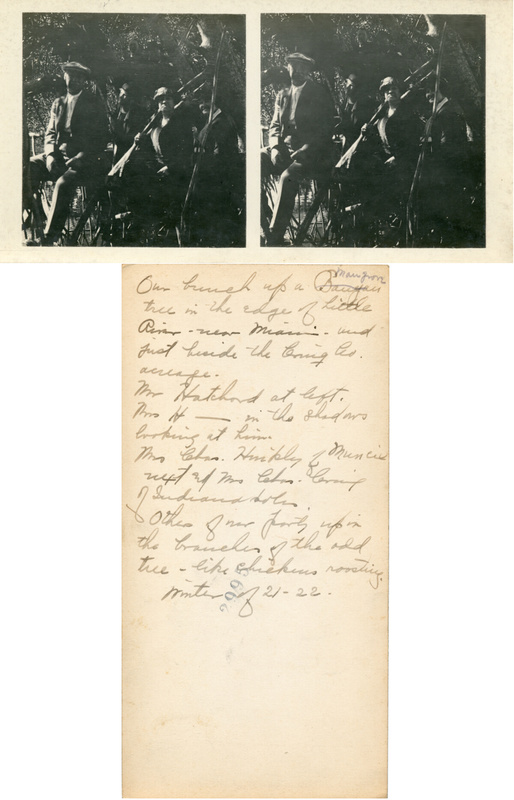 Mangrove
Our bunch up a Banyan
tree in the edge of Little
River - near Miami - and
just beside the Craig Co.
acreage.
Mr Hatchard at left.
Mrs H — in the shadows
looking at him.
Mrs Chas. Hinkley of Muncie
next & Mrs Chas. Craig
of Indianapolis.
Others of our party up in
the branches of the odd
tree - like chickens roosting.
Winter of 21-22.